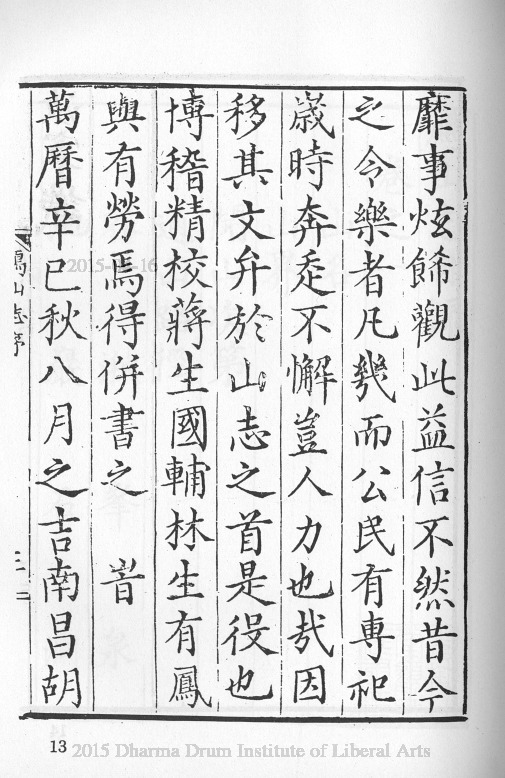 靡事炫餙觀此益信不然昔今
之今樂者凡幾而公民有專祀
歲時奔走不懈豈人力也㢤因
移其文弁於山志之首是役也
博稽精校蔣生國輔林生有鳳
與有勞焉得併書之　旹
萬曆辛巳秋八月之吉南昌胡
山志序
2015
16
13 2015 Dharma Drum Institute of Liberal Arts